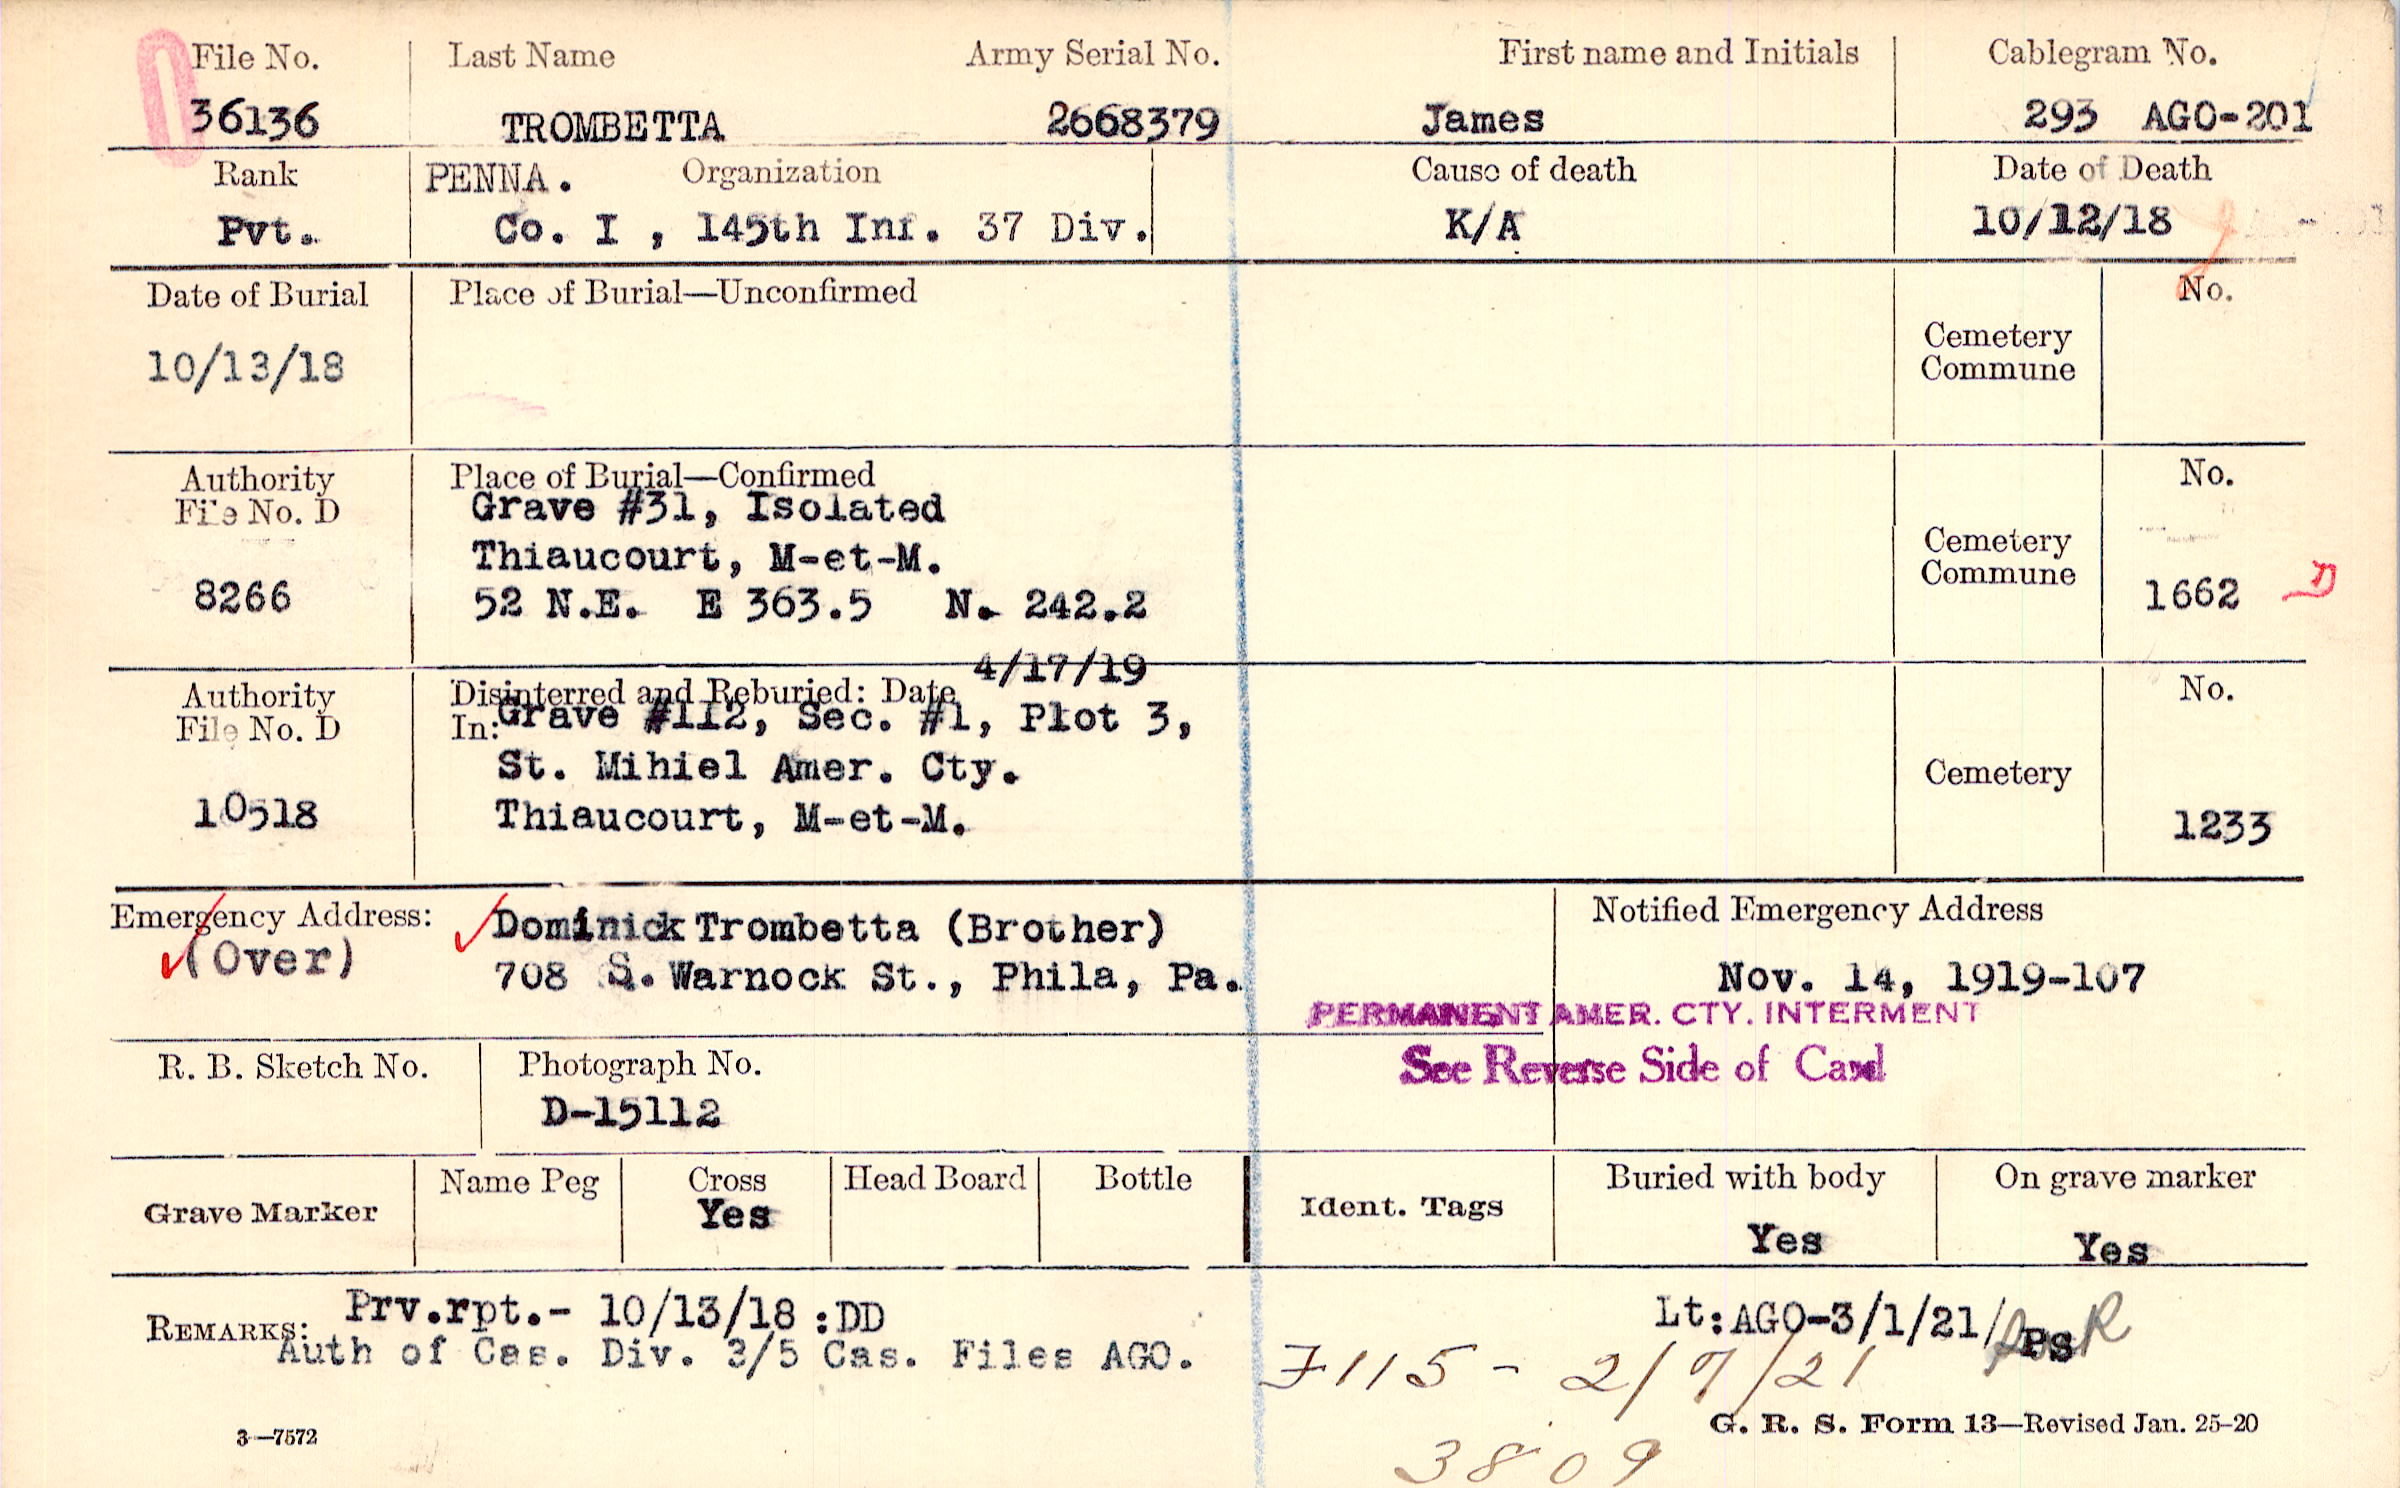 File No. Last Name Army Serial No. First name and Initials Cablegram No.
36136 TROMBETTA 2668379 James 293 AGO-201
Rank PENNA. Organization Cause of death Date of Death
Pvt. Co. I , 145th Inf. 37 Div. K/A 10/12/18
Date of Burial Place of Burial—Unconfirmed No.
10/13/18 Cemetery
Commune
Authority Place of Burial—Confirmed No.
File No. D Grave #31, Isolated
Thiaucourt, M-et-M. Cemetery
Commune
8266 52 N.E. E 363.5 N. 242.2 1662 D
Authority Disinterred and Reburied: Date 4/17/19 No.
File No. D In: Grave #112, Sec. #1, Plot 3,
St. Mihiel Amer. Cty. Cemetery
10518 Thiaucourt, M-et-M. 1233
Emergency Address: Dominick Trombetta (Brother) Notified Emergency Address
(Over) 708 S. Warnock St., Phila, Pa. Nov. 14, 1919-107
PERMANENT AMER. CTY. INTERMENT
R. B. Sketch No. Photograph No. See Reverse Side of Card
D-15112
Grave Marker Name Peg Cross Head Board Bottle Ident. Tags Buried with body On grave marker
Yes Yes Yes
REMARKS: Prv.rpt.- 10/13/18 :DD Lt:AGO-3/1/21/Ps
Auth of Cas. Div. 3/5 Cas. Files AGO. F115 - 2/7/21
3—7572 G. R. S. Form 13—Revised Jan. 25-20
3809